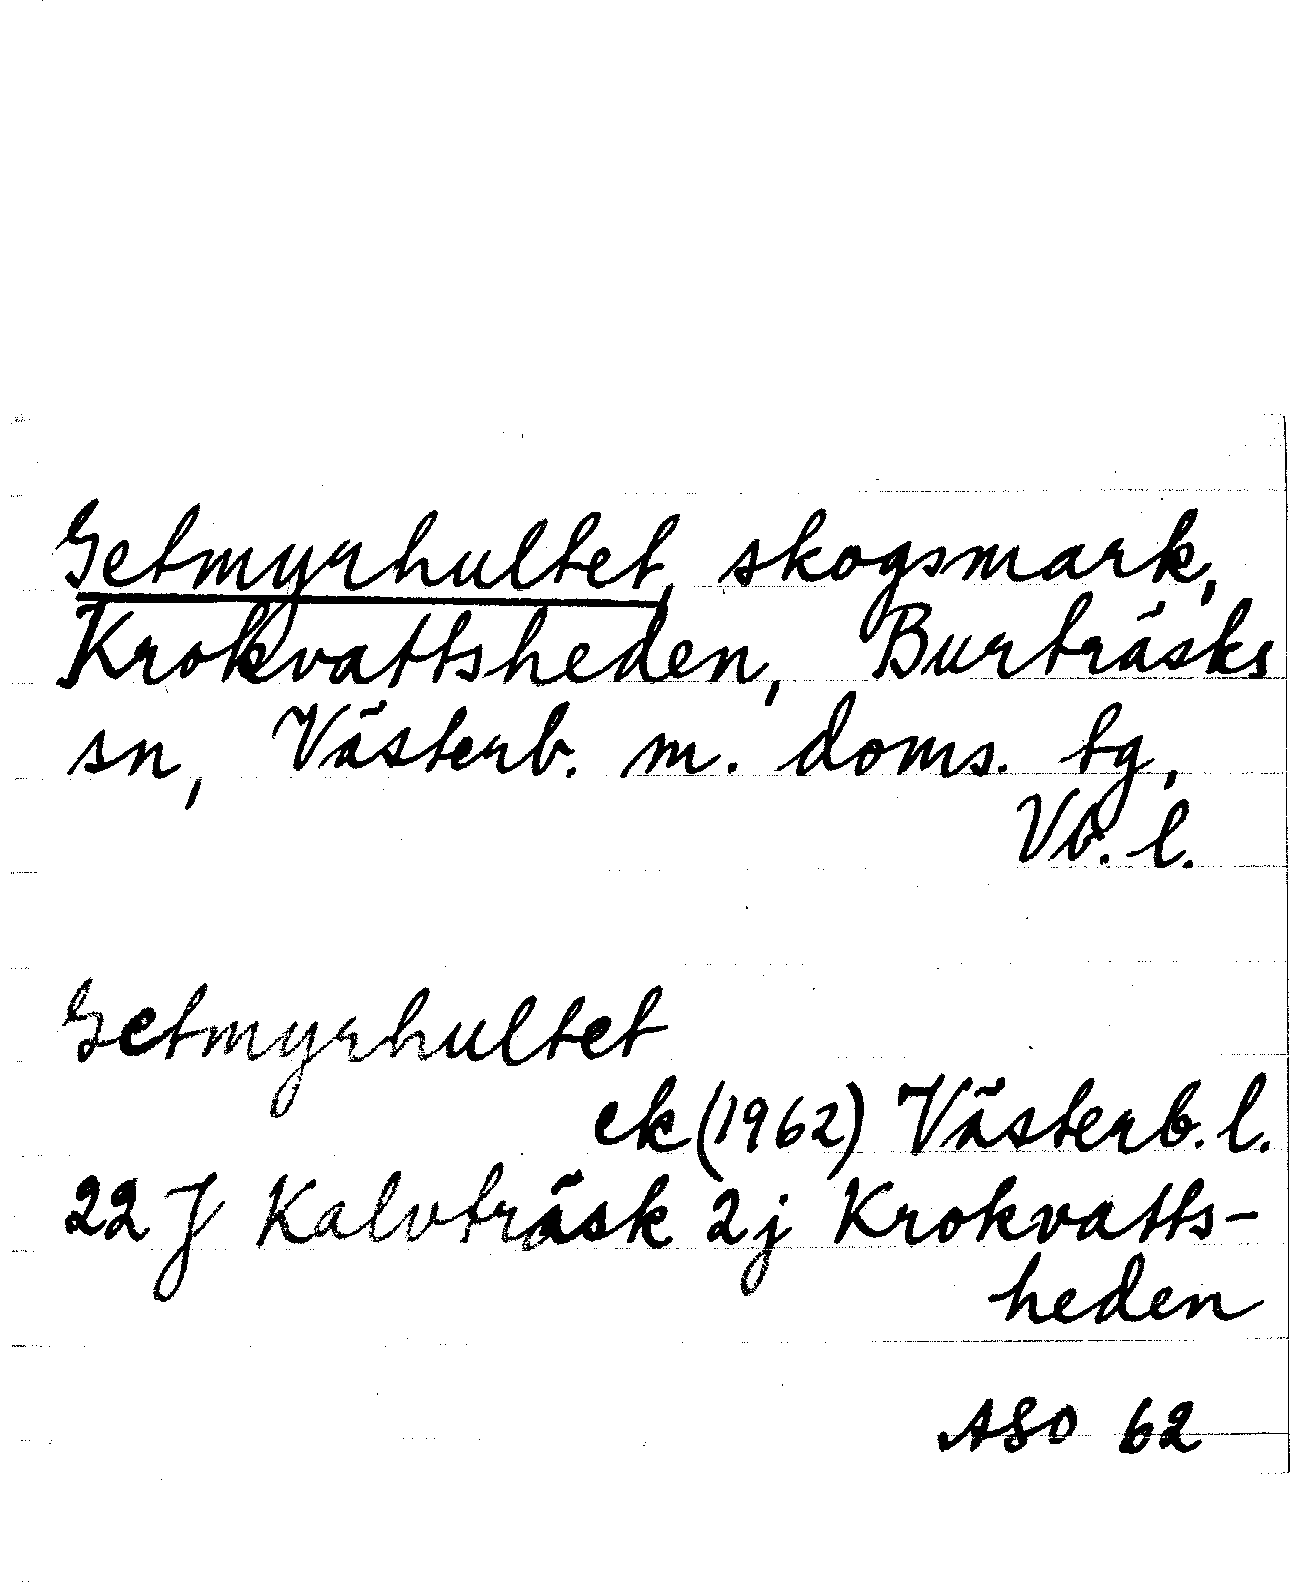 Getmyrhultet, skogsmark,
Krokvattsheden, Burträsks
sn, Västerb. m. doms. tg,
Vb. l.
Getmyrhultet
ek (1962) Västerb. l.
22 J Kalvträsk 2j Krokvatts-
heden
ASO 62